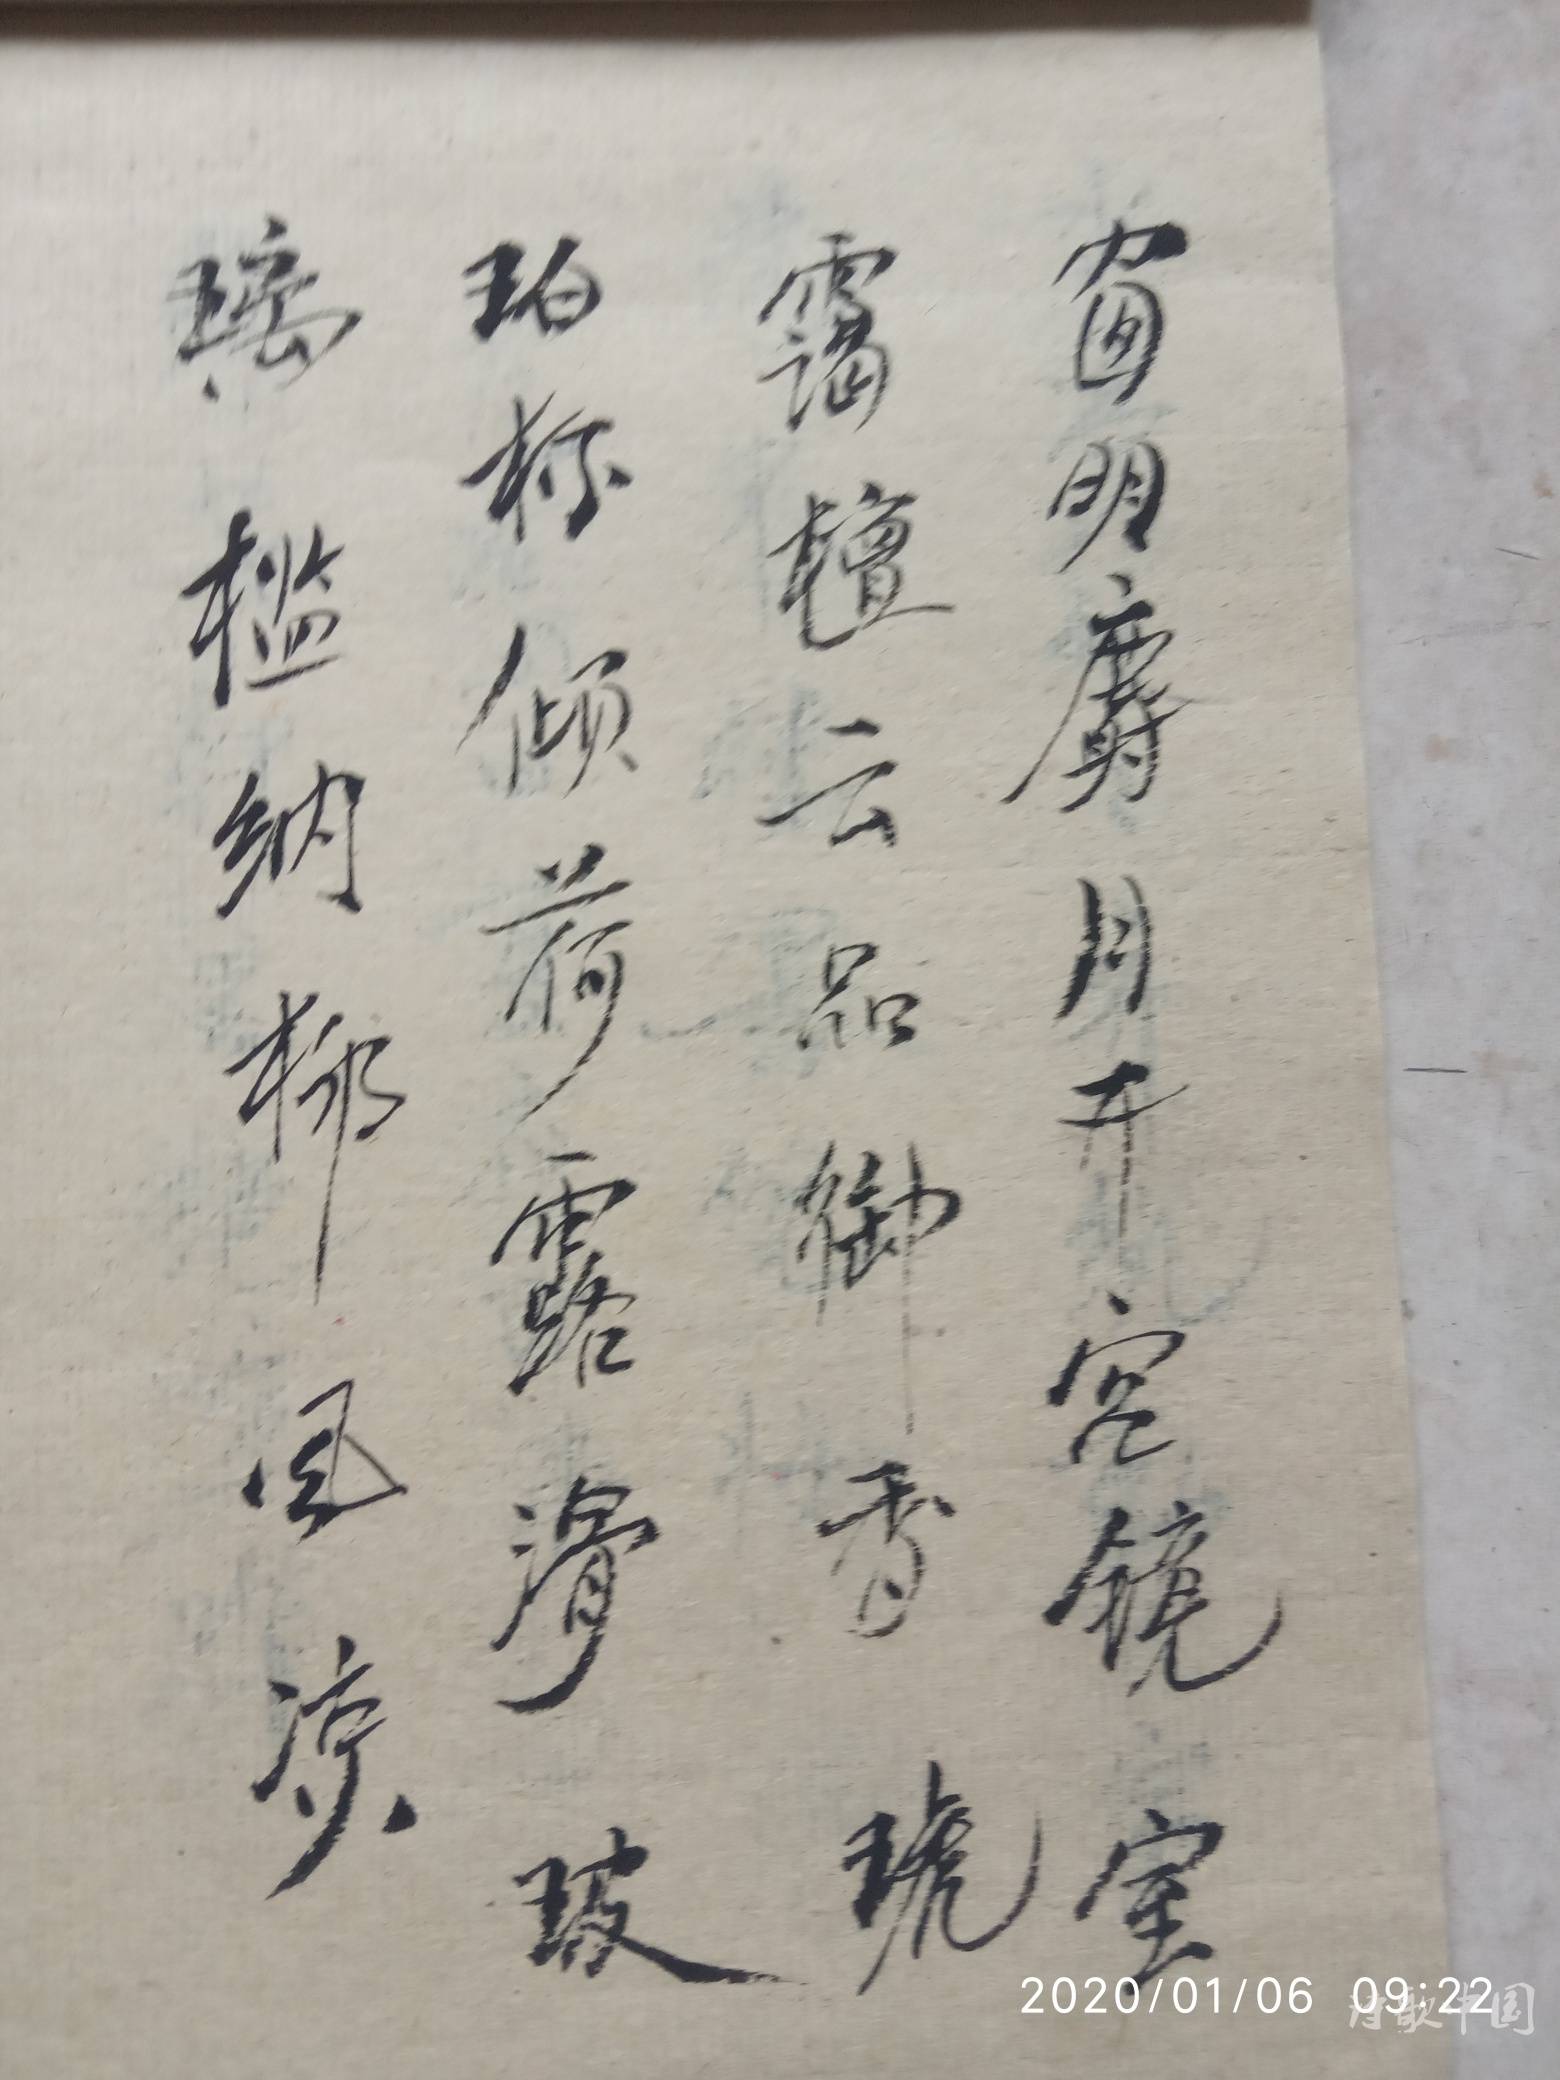 窗明麝月开宫镜室
霭檀云品御香琥
珀杯倾荷露滑玻
璃槛纳柳风凉
2020/01/06 09:22
诗歌中国